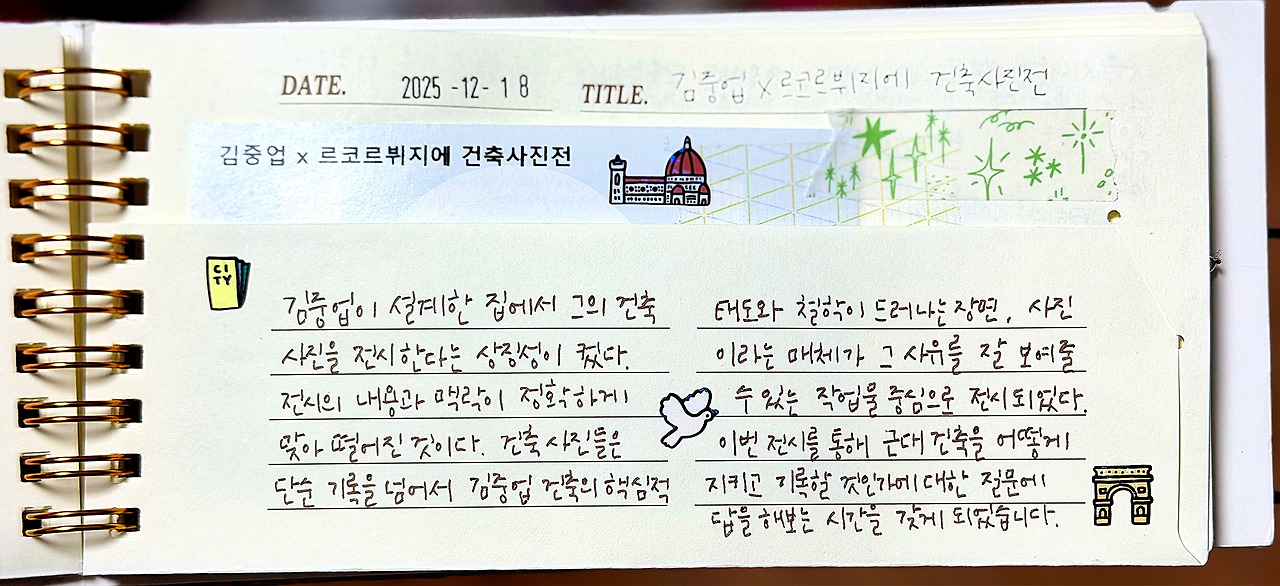 DATE. 2025-12-18 TITLE. 김중업 X 르코르뷔지에 건축사진전
김중업 x 르코르뷔지에 건축사진전
CI
TY
김중업이 설계한 집에서 그의 건축
사진을 전시한다는 상징성이 컸다.
전시의 내용과 맥락이 정확하게
맞아 떨어진 것이다. 건축사진들은
단순 기록을 넘어서 김중업 건축의 핵심적
태도와 철학이 드러나는 장면, 사진
이라는 매체가 그 사유를 잘 보여줄
수 있는 작업물 중심으로 전시되었다.
이번 전시를 통해 근대 건축을 어떻게
지키고 기록할 것인가에 대한 질문에
답을 해보는 시간을 갖게 되었습니다.